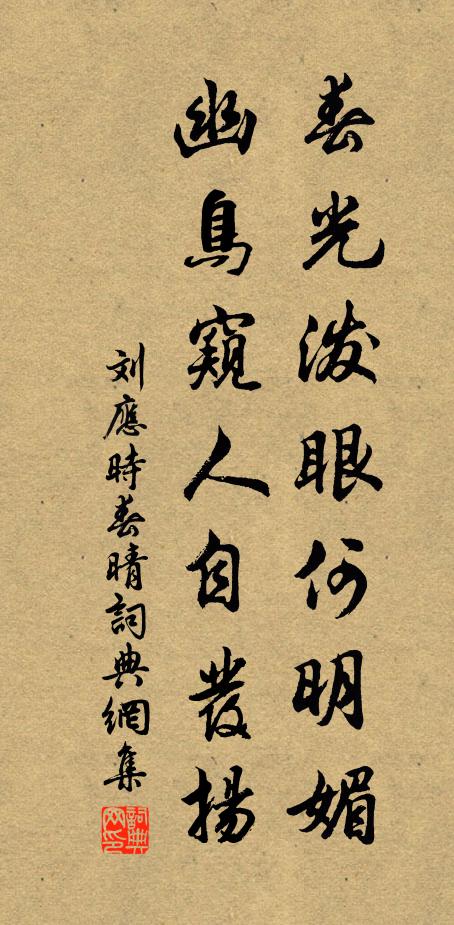 春光潑眼何明媚
幽鳥窺人自發揚
刘應時春晴詞典網集
詞典网印